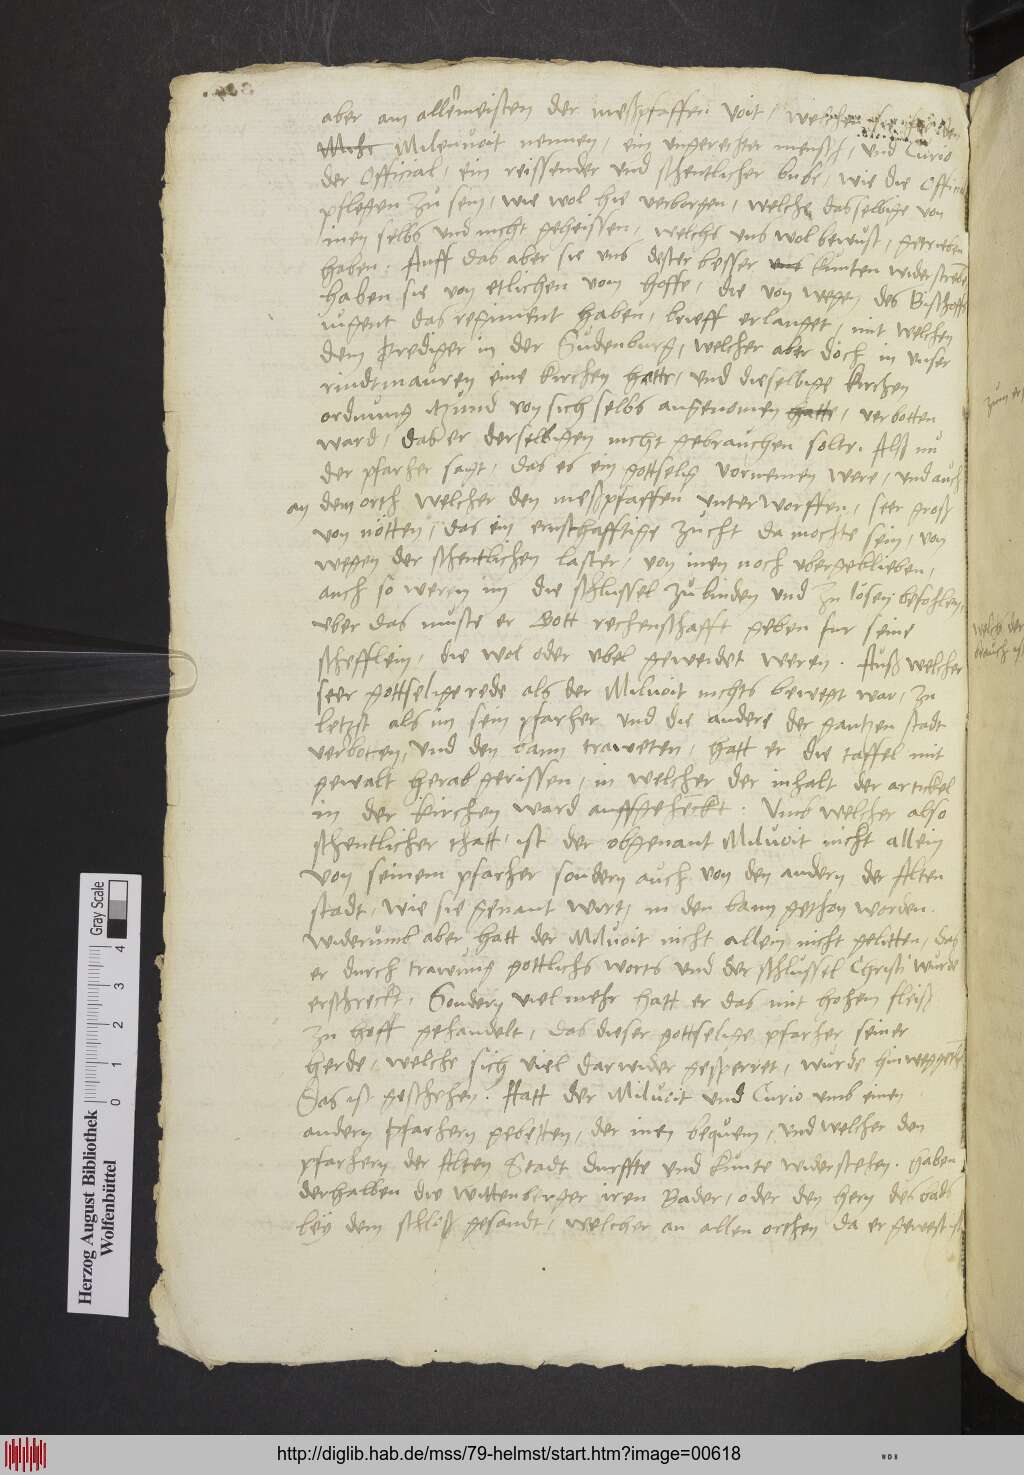 aber am allermeisten der meßpfaffen voit, welchen
Milenvoit nennen, ein ungerechter mensch, und Curio
der Official, ein reissender und schentlicher bube, wie die Official
pflegen zu sein, wie wol hie verborgen, welche dasselbige von
inen selbs und nicht geheissen, welchs uns wol bewust, getrieben
haben. Auff das aber sie uns dester besser kunten widerstreben
haben sie von etlichen vom hoffe, die von wegen des Bischoffs
iugent das regiment haben, brieff erlanget, mit welchen
dem Prediger in der Sudenburg, welcher aber doch in unser
rindtmauren eine kirchen hatte, und dieselbige kirchen
ordnung itzund von sich selbs angenomen hatte, verbotten
ward, das er derselbigen nicht gebrauchen solte. Alß nu
der pfarher sagt, das es ein gottselig vornemen were, und auch
an dem orth welcher den meßpfaffen unterworffen, seer groß
von nötten, das ein ernsthafftige zucht da mochte sein, von
wegen der schentlichen laster, von inen noch ubergeblieben,
auch so weren im die schlussel zu binden und zu lösen befohlen,
uber das muste er Gott rechenschafft geben fur seine
schefflein, die wol oder ubel geweidet weren. Auß welcher
seer gottselige rede als der Milvoit nichts bewegt war, zu
letzt als im sein pfarher und die andere der gantzen stadt
verboten, und den bann traweten, hatt er die taffel mit
gewalt herab gerissen, in welcher der inhalt der artickel
in der kirchen ward auffgeheckt. Umb welcher also
schentlicher thatt, ist der obgenant Milvoit nicht allein
von seinem pfarher sondern auch von den andern der Alten
stadt, wie sie genant wirt, in den bann gethan worden.
Widerumb aber hatt der Milvoit nicht allein nicht gelitten, das
er durch trawung gottlichs worts und der schlussel Christi wurde
erschreckt, Sondern viel mehr hatt er das mit hohen fleiß
zu hoff gehandelt, das dieser gottselige pfarher seiner
herde, welche sich viel darwider gesperret, wurde hinweggen
Das ist geschehen. Hatt der Milvoit und Curio umb einen
andern Pfarhern gebetten, der inen bequem, und welcher den
pfarhern der Alten Stadt durffte und kunte widerstehen. haben
derhalben die Wittenberger iren Bader, oder den hern des bads
bey dem schloß gesandt, welcher an allen orthen da er gewest ist
zum er
welch der
brauch ist
Herzog August Bibliothek
Wolfenbüttel
0 1 2 3 4
Gray Scale
http://diglib.hab.de/mss/79-helmst/start.htm?image=00618